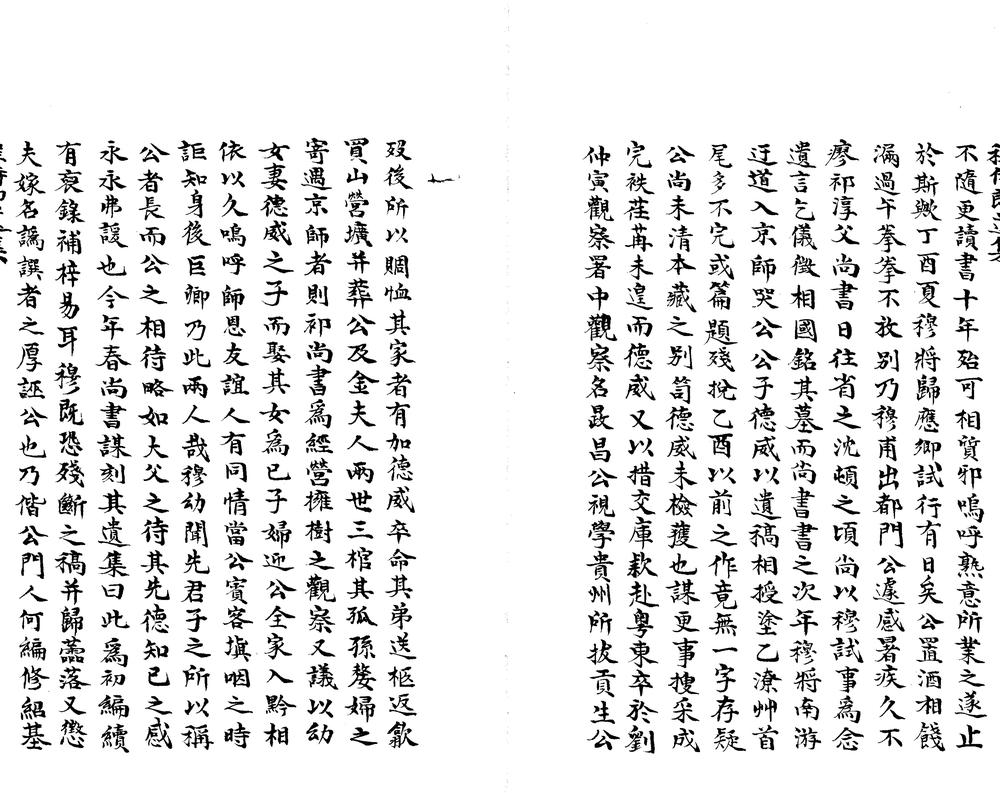 不隨更讀書十年殆可相質邪嗚呼熟意所業之遂止
於斯歟丁酉夏穆將歸應鄉試行有日矣公置酒相餞
漏過午拳拳不放別乃穆甫出都門公遽感暑疾久不
瘳祁淳父尚書日往省之沈頓之頃尚以穆試事為念
遺言乞儀徵相國銘其墓而尚書書之次年穆將南游
迂道入京師哭公公子德威以遺稿相授塗乙潦艸首
尾多不完或篇題殘挩乙酉以前之作竟無一字存疑
公尚未清本藏之別笥德威未檢獲也謀更事搜采成
完袟荏苒未遑而德威又以措交庫款赴粵東卒於劉
仲寅觀察署中觀察名晸昌公視學貴州所拔貢生公
歿後所以賙恤其家者有加德威卒命其弟送柩返歙
買山營壙并葬公及金夫人兩世三棺其孤孫嫠婦之
寄遇京師者則祁尚書為經營擁樹之觀察又議以幼
女妻德威之子而娶其女為己子婦迎公全家入黔相
依以久嗚呼師恩友誼人有同情當公賓客塡咽之時
詎知身後巨卿乃此兩人哉穆幼聞先君子之所以稱
公者長而公之相待略如大父之待其先德知己之感
永永弗諼也今年春尚書謀刻其遺集曰此為初編續
有裒錄補梓易耳穆既恐殘斷之稿并歸蘦落又懲
夫嫁名譌譔者之厚誣公也乃偕公門人何編修紹基